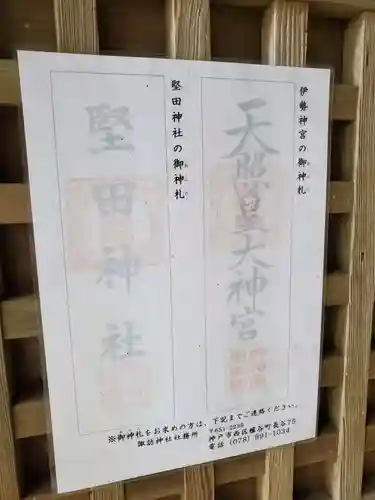 伊勢神宮の御神札
天照皇大神宮
堅田神社の御神札
堅田神社
※御神札をお求めの方は、下記までご連絡ください。
諏訪神社社務所
〒651-2238
神戸市西区櫨谷町長谷75
電話 (078) 991-1034